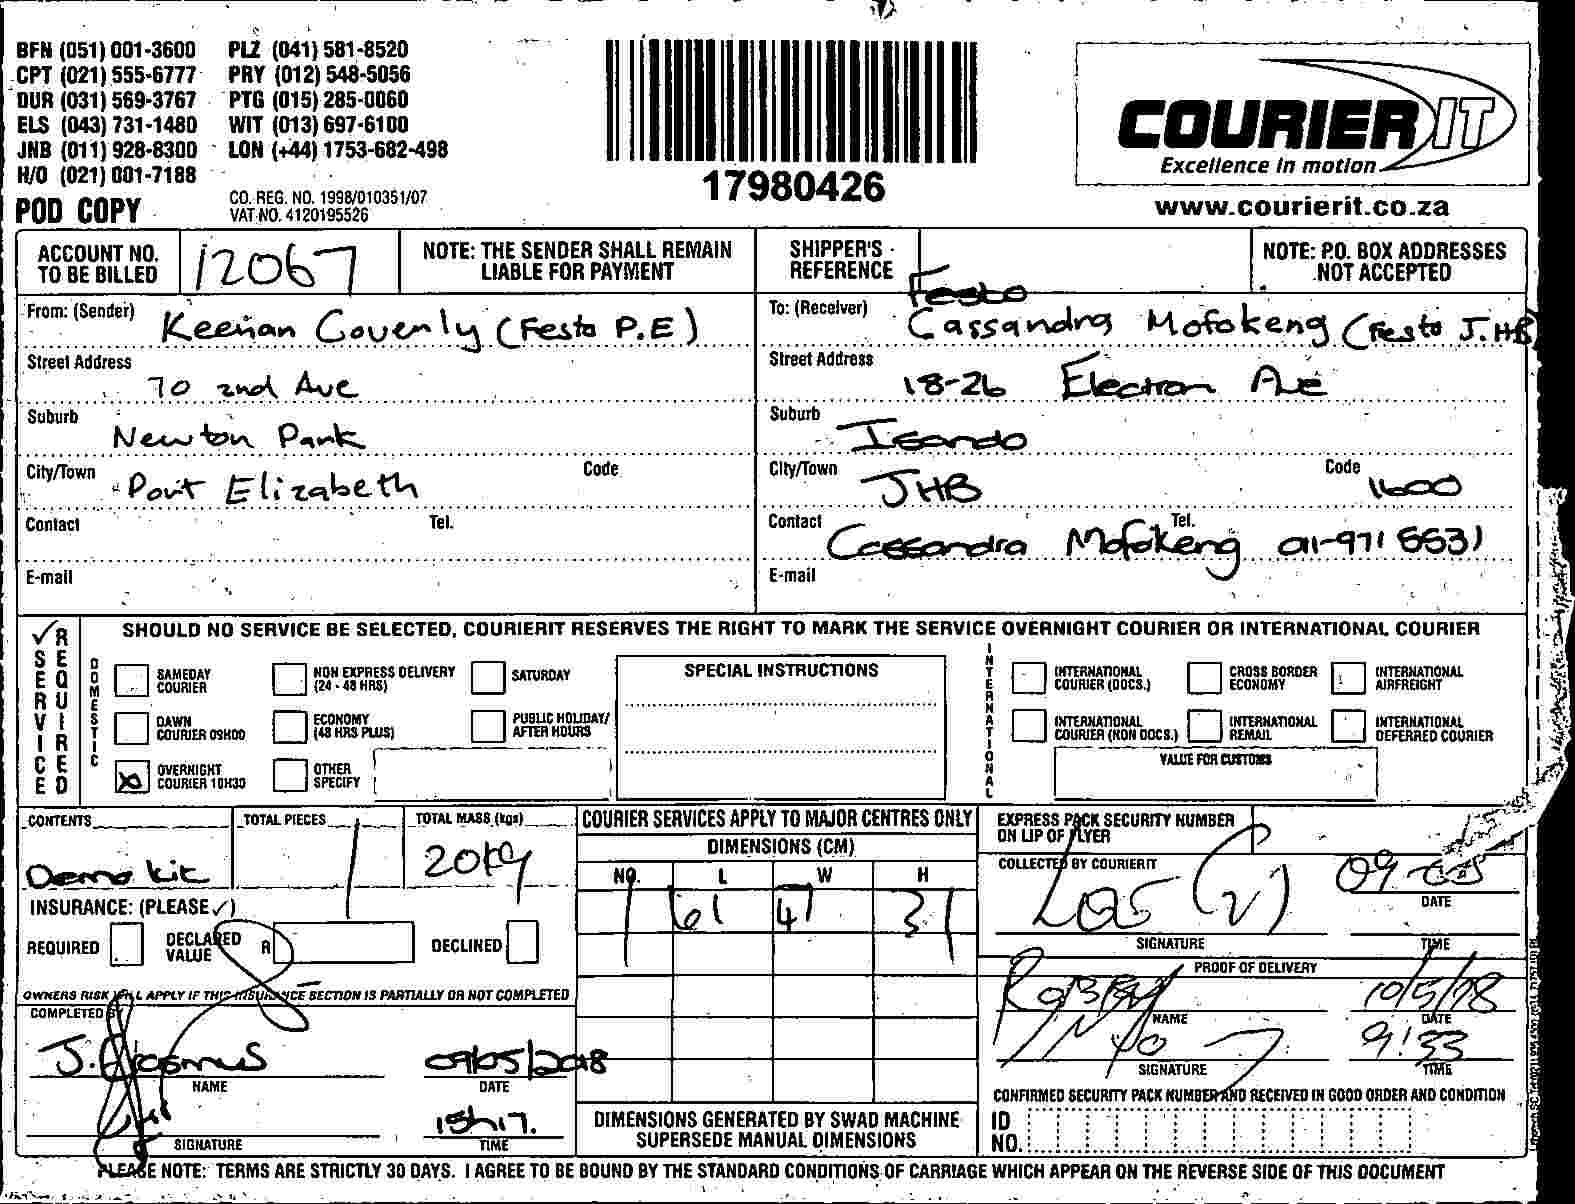 BFN (051) 001-3600 PLZ (041) 581-8520
CPT (021) 555-6777 PRY (012) 548-5056
DUR (031) 569-3767 PTG (015) 285-0060
ELS (043) 731-1480 WIT (013) 697-6100
JNB (011) 928-8300 LON (+44) 1753-682-498
H/O (021) 001-7188
POD COPY
CO. REG. NO. 1998/010351/07
VAT NO. 4120195526
17980426
COURIER IT
Excellence in motion
www.courierit.co.za
ACCOUNT NO. TO BE BILLED 12067
NOTE: THE SENDER SHALL REMAIN LIABLE FOR PAYMENT
SHIPPER'S REFERENCE
NOTE: P.O. BOX ADDRESSES NOT ACCEPTED
From: (Sender) Keenan Covenly (Festo P.E)
Street Address 70 2nd Ave
Suburb Newton Park
City/Town Port Elizabeth Code
Contact Tel.
E-mail
Festo
To: (Receiver) Cassandra Mofokeng (Festo J.HB)
Street Address 18-26 Electron Ave
Suburb Isando
City/Town JHB Code 1600
Contact Cassandra Mofokeng Tel. 011-971 5531
E-mail
SERVICE REQUIRED
SHOULD NO SERVICE BE SELECTED, COURIERIT RESERVES THE RIGHT TO MARK THE SERVICE OVERNIGHT COURIER OR INTERNATIONAL COURIER
DOMESTIC
SAMEDAY COURIER
NON EXPRESS DELIVERY (24 - 48 HRS)
SATURDAY
DAWN COURIER 09H00
ECONOMY (48 HRS PLUS)
PUBLIC HOLIDAY/ AFTER HOURS
OVERNIGHT COURIER 10H30
OTHER SPECIFY
SPECIAL INSTRUCTIONS
INTERNATIONAL
INTERNATIONAL COURIER (DOCS.)
CROSS BORDER ECONOMY
INTERNATIONAL AIRFREIGHT
INTERNATIONAL COURIER (NON DOCS.)
INTERNATIONAL REMAIL
INTERNATIONAL DEFERRED COURIER
VALUE FOR CUSTOMS
CONTENTS Demo kit
TOTAL PIECES 1
TOTAL MASS (kgs) 20kg
INSURANCE: (PLEASE ✓)
REQUIRED DECLARED VALUE R DECLINED
OWNERS RISK WILL APPLY IF THIS INSURANCE SECTION IS PARTIALLY OR NOT COMPLETED
COMPLETED BY
J. Erasmus 09/05/2018
NAME DATE
15h17.
SIGNATURE TIME
COURIER SERVICES APPLY TO MAJOR CENTRES ONLY
DIMENSIONS (CM)
NO. L W H
1 61 41 31
DIMENSIONS GENERATED BY SWAD MACHINE SUPERSEDE MANUAL DIMENSIONS
EXPRESS PACK SECURITY NUMBER ON LIP OF FLYER
COLLECTED BY COURIERIT
09-05
DATE
SIGNATURE TIME
PROOF OF DELIVERY
10/5/18
NAME DATE
9:33
SIGNATURE TIME
CONFIRMED SECURITY PACK NUMBER AND RECEIVED IN GOOD ORDER AND CONDITION
ID NO.
PLEASE NOTE: TERMS ARE STRICTLY 30 DAYS. I AGREE TO BE BOUND BY THE STANDARD CONDITIONS OF CARRIAGE WHICH APPEAR ON THE REVERSE SIDE OF THIS DOCUMENT